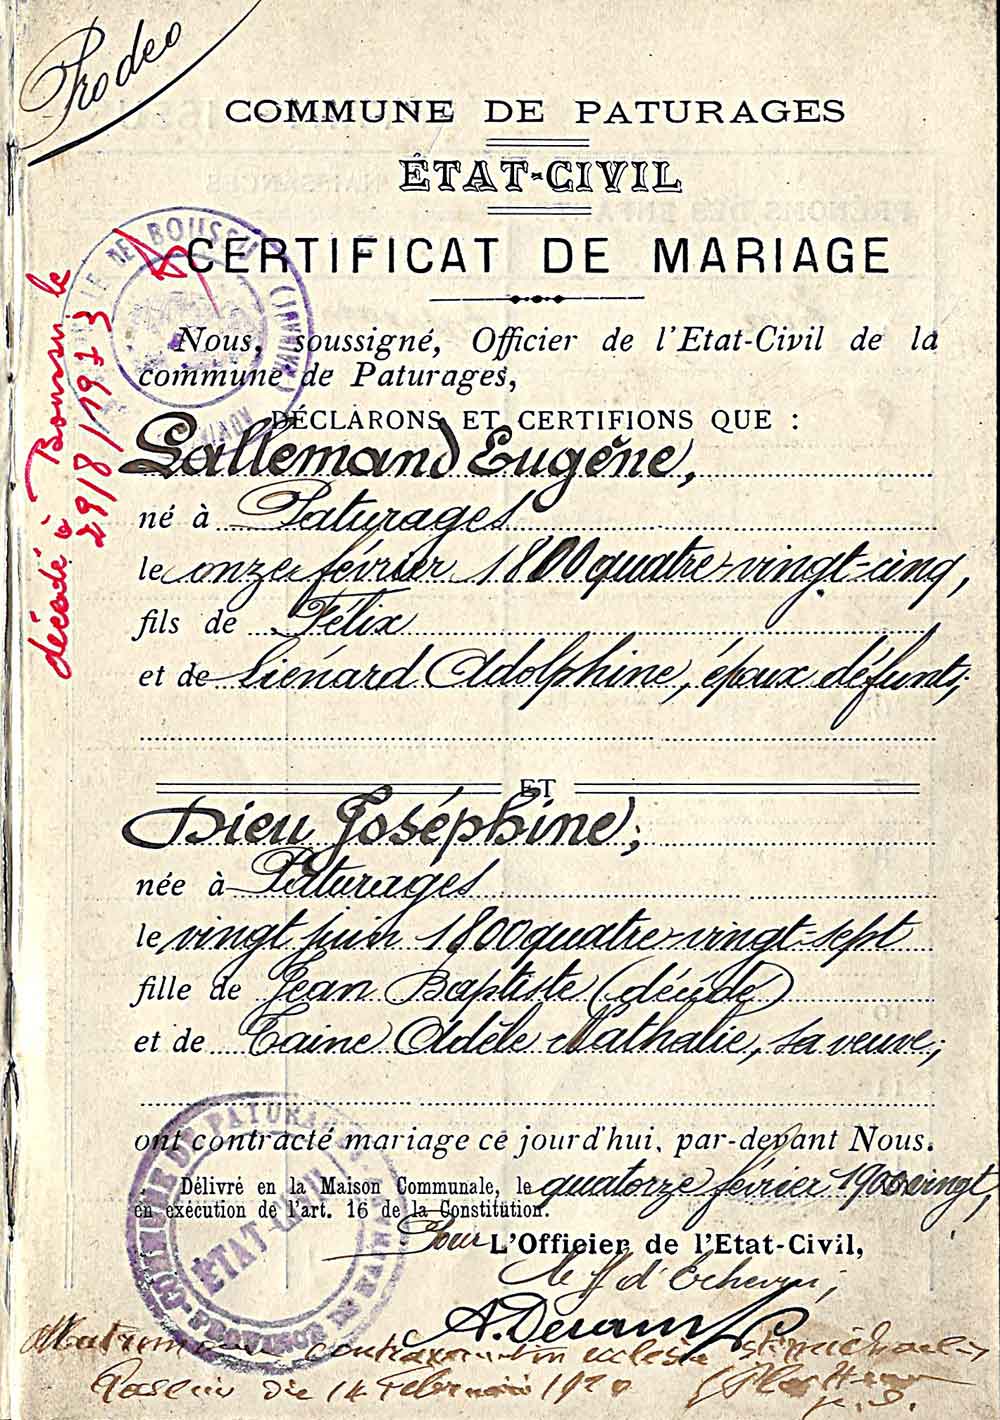 Prodeo
COMMUNE DE PATURAGES
ÉTAT-CIVIL
CERTIFICAT DE MARIAGE
DE BOUSSU (HAINAUT)
décédé à Boussu le
29/8/1973
Nous, soussigné, Officier de l'Etat-Civil de la
commune de Paturages,
DÉCLARONS ET CERTIFIONS QUE :
Lallemand Eugène,
né à Paturages
le onze février 1800 quatre-vingt-cinq,
fils de Félix
et de Liénard Adolphine, époux défunts,
ET
Dieu Joséphine,
née à Paturages
le vingt juin 1800 quatre-vingt-sept
fille de Jean Baptiste (décédé)
et de Taine Adèle Nathalie, sa veuve,
ont contracté mariage ce jourd'hui, par-devant Nous.
Délivré en la Maison Communale, le quatorze février 1900 vingt,
en exécution de l'art. 16 de la Constitution.
Pour L'Officier de l'Etat-Civil,
d'Echevin,
COMMUNE DE PATURAGES
ÉTAT-CIVIL
PROVINCE DE HAINAUT
contraxerunt in ecclesia Sti Michaelis
die 14 Februarii 1920